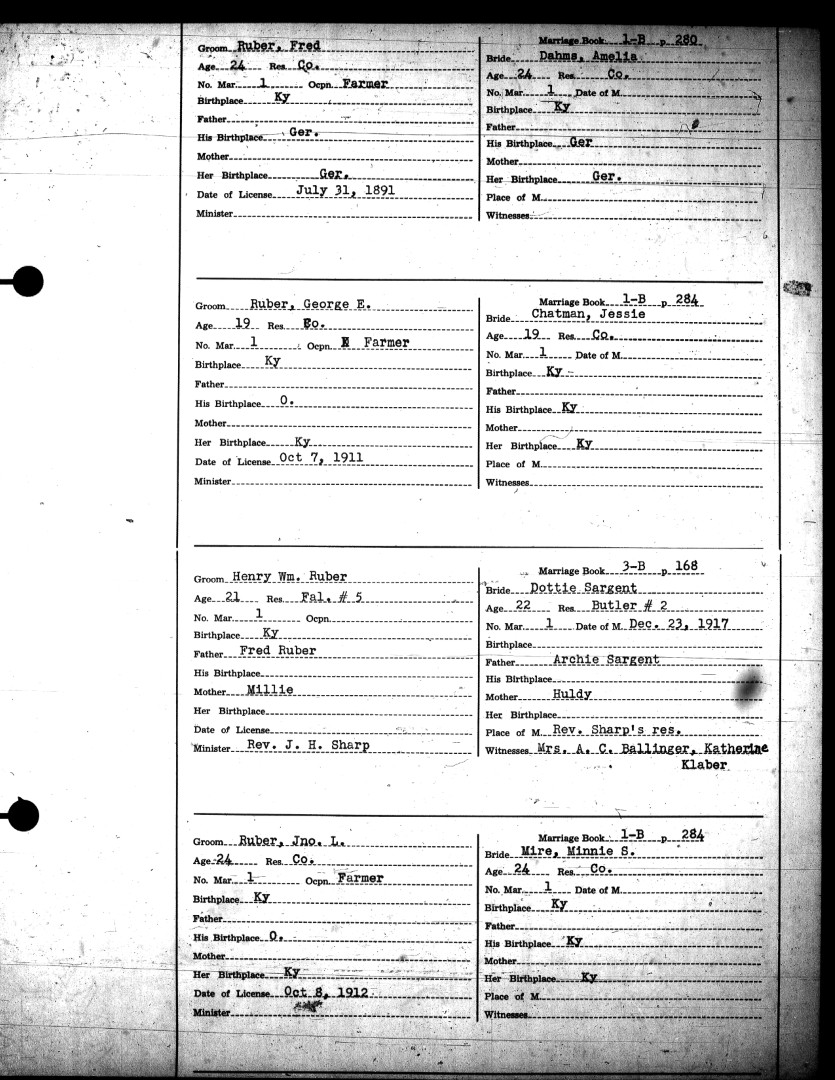 Groom Ruber, Fred
Age 24 Res Co.
No. Mar 1 Ocpn Farmer
Birthplace Ky
Father
His Birthplace Ger.
Mother
Her Birthplace Ger.
Date of License July 31, 1891
Minister
Marriage Book 1-B p 280
Bride Dahms, Amelia
Age 24 Res Co.
No. Mar 1 Date of M.
Birthplace Ky
Father
His Birthplace Ger
Mother
Her Birthplace Ger.
Place of M.
Witnesses
Groom Ruber, George E.
Age 19 Res Co.
No. Mar 1 Ocpn Farmer
Birthplace Ky
Father
His Birthplace O.
Mother
Her Birthplace Ky
Date of License Oct 7, 1911
Minister
Marriage Book 1-B p 284
Bride Chatman, Jessie
Age 19 Res Co.
No. Mar 1 Date of M.
Birthplace Ky
Father
His Birthplace Ky
Mother
Her Birthplace Ky
Place of M.
Witnesses
Groom Henry Wm. Ruber
Age 21 Res Fal. # 5
No. Mar 1 Ocpn.
Birthplace Ky
Father Fred Ruber
His Birthplace
Mother Millie
Her Birthplace
Date of License
Minister Rev. J. H. Sharp
Marriage Book 3-B p 168
Bride Dottie Sargent
Age 22 Res Butler # 2
No. Mar 1 Date of M. Dec. 23, 1917
Birthplace
Father Archie Sargent
His Birthplace
Mother Huldy
Her Birthplace
Place of M. Rev. Sharp's res.
Witnesses Mrs. A. C. Ballinger, Katherine
Klaber
Groom Ruber, Jno. L.
Age 24 Res Co.
No. Mar 1 Ocpn Farmer
Birthplace Ky
Father
His Birthplace O.
Mother
Her Birthplace Ky
Date of License Oct 8, 1912
Minister
Marriage Book 1-B p 284
Bride Mire, Minnie S.
Age 24 Res Co.
No. Mar 1 Date of M.
Birthplace Ky
Father
His Birthplace Ky
Mother
Her Birthplace Ky
Place of M.
Witnesses